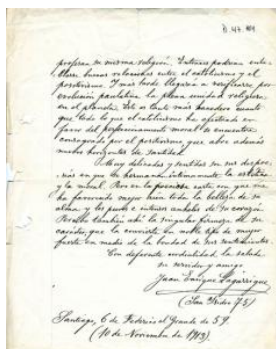 profesan su misma religión. Entonces podrían enta-
blarse buenas relaciones entre el catolicismo y el
positivismo. Y mas tarde llegaria a verificarse por
evolución paulatina la plena unidad religiosa
en el planeta. Esto es tanto mas hacedero cuanto
que todo lo que el catolicismo ha efectuado en
favor del perfeccionamiento moral se encuentra
consagrado por el positivismo, que abre además
nuevos horizontes de santidad.
Muy delicados y sentidos son sus
más en que se hermanan íntimamente la estética
y la moral. Pero en la preciosa carta con que me
ha favorecido mejor aun toda la belleza de su
alma y los puros e intensos anhelos de su corazon.
Resalta también ahí la singular firmeza de su
carácter, que la convierte en noble tipo de mujer
fuerte en medio de la bondad de sus sentimientos.
Con deferente cordialidad la saluda
su servidor y amigo
Juan Enrique Lagarrigue
(San Isidro 75)
Santiago, 6 de Federico el Grande de 59.
(10 de Noviembre de 1913).